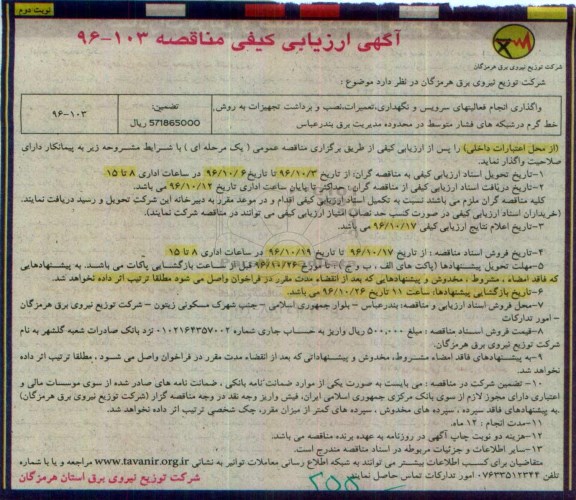 نوبت دوم
آگهی ارزیابی کیفی مناقصه ۱۰۳-۹۶
شرکت توزیع نیروی برق هرمزگان
شرکت توزیع نیروی برق هرمزگان در نظر دارد موضوع :
واگذاری انجام فعالیتهای سرویس و نگهداری،تعمیرات،نصب و برداشت تجهیزات به روش خط گرم درشبکه های فشار متوسط در محدوده مدیریت برق بندرعباس
تضمین: 571865000 ریال
۹۶-۱۰۳
(از محل اعتبارات داخلی) را پس از ارزیابی کیفی از طریق برگزاری مناقصه عمومی ( یک مرحله ای ) با شرایط مشروحه زیر به پیمانکار دارای
صلاحیت واگذار نماید.
۱-تاریخ تحویل اسناد ارزیابی کیفی به مناقصه گران: از تاریخ ۹۶/۱۰/۳ تا تاریخ ۹۶/۱۰/۶ در ساعات اداری ۸ تا ۱۵
۲-تاریخ دریافت اسناد ارزیابی کیفی از مناقصه گران: حداکثر تا پایان ساعت اداری تاریخ ۹۶/۱۰/۱۲ می باشد.
کلیه مناقصه گران ملزم می باشند نسبت به تکمیل اسناد ارزیابی کیفی اقدام و در موعد مقرر به دبیرخانه این شرکت تحویل و رسید دریافت نمایند.
(خریداران اسناد ارزیابی کیفی در صورت کسب حد نصاب امتیاز ارزیابی کیفی می توانند در مناقصه شرکت نمایند).
۳-تاریخ اعلام نتایج ارزیابی کیفی ۹۶/۱۰/۱۷ می باشد.
۴-تاریخ فروش اسناد مناقصه : از تاریخ ۹۶/۱۰/۱۷ تا تاریخ ۹۶/۱۰/۱۹ در ساعات اداری ۸ تا ۱۵
۵-مهلت تحویل پیشنهادها (پاکت های الف ، ب و ج) : تا مورخ ۹۶/۱۰/۲۶ قبل از ساعت بازگشایی پاکات می باشد. به پیشنهادهایی
که فاقد امضاء ، مشروط ، مخدوش و پیشنهادهایی که بعد از انقضاء مدت مقرر در فراخوان واصل می شود مطلقا ترتیب اثر داده نخواهد شد.
۶-تاریخ بازگشایی پیشنهادها: ساعت ۱۱ تاریخ ۹۶/۱۰/۲۶ می باشد.
۷-محل فروش اسناد ارزیابی و مناقصه: بندرعباس - بلوار جمهوری اسلامی - جنب شهرک مسکونی زیتون - شرکت توزیع نیروی برق هرمزگان
- امور تدارکات
۸-قیمت فروش اسناد مناقصه : مبلغ ۵۰۰,۰۰۰ ریال واریز به حساب جاری شماره ۰۱۰۲۱۶۴۳۵۷۰۰۲ نزد بانک صادرات شعبه گلشهر به نام
شرکت توزیع نیروی برق هرمزگان.
۹-به پیشنهادهای فاقد امضاء مشروط، مخدوش و پیشنهاداتی که بعد از انقضاء مدت مقرر در فراخوان واصل می شود ، مطلقا ترتیب اثر داده
نخواهد شد.
۱۰- تضمین شرکت در مناقصه : می بایست به صورت یکی از موارد ضمانت نامه بانکی ، ضمانت نامه های صادر شده از سوی موسسات مالی و
اعتباری دارای مجوز لازم از سوی بانک مرکزی جمهوری اسلامی ایران، فیش واریز وجه نقد در وجه مناقصه گزار (شرکت توزیع نیروی برق هرمزگان)
.به پیشنهادهای فاقد سپرده ، سپرده های مخدوش ، سپرده های کمتر از میزان مقرر، چک شخصی ترتیب اثر داده نخواهد شد.
۱۱-مدت انجام : ۱۲ ماه.
۱۲-هزینه دو نوبت چاپ آگهی در روزنامه به عهده برنده مناقصه می باشد.
۱۳-سایر اطلاعات و جزئیات مربوطه در اسناد مناقصه مندرج است.
متقاضیان برای کسب اطلاعات بیشتر می توانند به شبکه اطلاع رسانی معاملات توانیر به نشانی www.tavanir.org.ir مراجعه و یا با شماره
تلفن ۰۷۶۳۳۵۱۲۳۴۴ امور تدارکات تماس حاصل نمایند.
شرکت توزیع نیروی برق استان هرمزگان